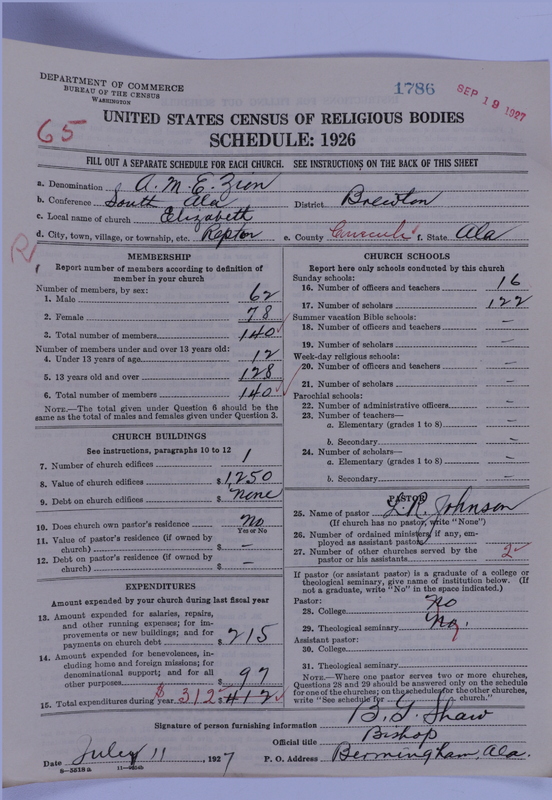 DEPARTMENT OF COMMERCE
BUREAU OF THE CENSUS
WASHINGTON
1786
SEP 19 1927
65
UNITED STATES CENSUS OF RELIGIOUS BODIES
SCHEDULE: 1926
FILL OUT A SEPARATE SCHEDULE FOR EACH CHURCH. SEE INSTRUCTIONS ON THE BACK OF THIS SHEET
a. Denomination A. M. E. Zion
b. Conference South Ala District Brewton
c. Local name of church Elizabeth
d. City, town, village, or township, etc. Repton e. County f. State Ala
MEMBERSHIP
Report number of members according to definition of
member in your church
Number of members, by sex:
1. Male 62
2. Female 78
3. Total number of members 140
Number of members under and over 13 years old:
4. Under 13 years of age 12
5. 13 years old and over 128
6. Total number of members 140
NOTE.—The total given under Question 6 should be the
same as the total of males and females given under Question 3.
CHURCH BUILDINGS
See instructions, paragraphs 10 to 12
7. Number of church edifices 1
8. Value of church edifices $ 1250
9. Debt on church edifices $ None
10. Does church own pastor's residence No
Yes or No
11. Value of pastor's residence (if owned by
church) $ —
12. Debt on pastor's residence (if owned by
church) $ —
EXPENDITURES
Amount expended by your church during last fiscal year
13. Amount expended for salaries, repairs,
and other running expenses; for im-
provements or new buildings; and for
payments on church debt $ 215
14. Amount expended for benevolences, in-
cluding home and foreign missions; for
denominational support; and for all
other purposes $ 97
15. Total expenditures during year $ 312 $ 412
CHURCH SCHOOLS
Report here only schools conducted by this church
Sunday schools:
16. Number of officers and teachers 16
17. Number of scholars 122
Summer vacation Bible schools:
18. Number of officers and teachers —
19. Number of scholars —
Week-day religious schools:
20. Number of officers and teachers —
21. Number of scholars —
Parochial schools:
22. Number of administrative officers —
23. Number of teachers—
a. Elementary (grades 1 to 8) —
b. Secondary —
24. Number of scholars—
a. Elementary (grades 1 to 8) —
b. Secondary —
PASTOR
25. Name of pastor L. R. Johnson
(If church has no pastor, write "None")
26. Number of ordained ministers, if any, em-
ployed as assistant pastors
27. Number of other churches served by the
pastor or his assistants 2
If pastor (or assistant pastor) is a graduate of a college or
theological seminary, give name of institution below. (If
not a graduate, write "No" in the space indicated.)
Pastor:
28. College No
29. Theological seminary No.
Assistant pastor:
30. College
31. Theological seminary
NOTE.—Where one pastor serves two or more churches,
Questions 28 and 29 should be answered only on the schedule
for one of the churches; on the schedules for the other churches,
write "See schedule for church."
Signature of person furnishing information B. G. Shaw
Official title Bishop
Date July 11, 1927 P. O. Address Bermingham, Ala.
8—5618 a